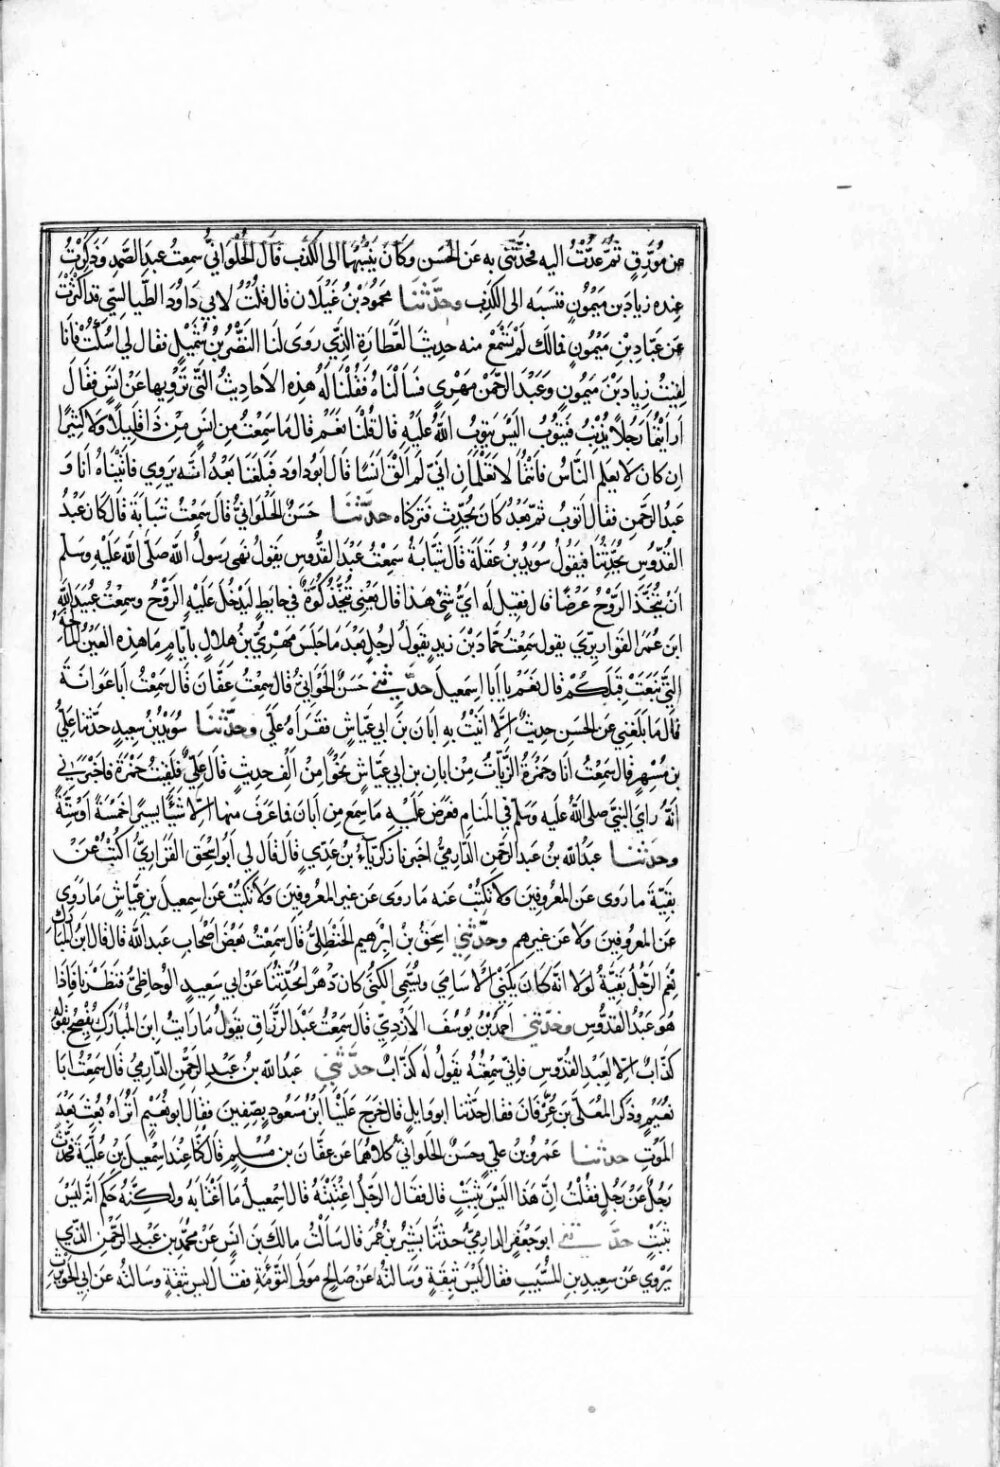 عن مُوَرِّقٍ ثم عُدْتُ اليه فحدَّثني به عن الحَسن وكانَ يَنسُبُهُما الى الكذب قال الحُلْوانيُّ سمعتُ عبد الصَّمد وذَكرتُ
عنده زيادَ بن مَيمُونٍ فنسَبَه الى الكذِب وحدَّثنا محمُودُ بْنُ غَيلان قال قلتُ لابي داوُدَ الطَّيالسِي قد اكثرتَ
عن عَبّاد بْنِ مَيمُونٍ فمالك لَمْ تَسْمَعْ منه حديثَ العَطَّارة الذِي رَوَى لنَا النَضْرُ بْنُ شُمَيْلٍ فقال لي اسكُتْ فَانَا
لقِيتُ زيادَ بْنَ مَيمُونٍ وَعَبْدَ الرّحمَنْ مَهْرِي فسَألناهُ فَقُلْنَا لَهُ هذِه الاحاديثُ التّي تَرْوِيها عنْ انَسٍ فقَالَ
ارأيتُمَا رَجُلاً يُذْنِبُ فَيَتُوبُ اليْسَ يَتوبُ اللَّهُ عليْهِ قال قُلْنَا نَعَمْ قال مَا سَمِعْتُ مِنْ انَسٍ مِنْ ذَا قَليلاً ولا كثِيرًا
إن كان لا يَعلم النَّاسُ فأنتُمَا لا تَعْلَمَانِ انّي لَم الْقَ انسًا قال ابُو داوُد فَبَلَغَنَا بَعْدُ انّه يَروِي فاتَيْنَاهُ انَا وَ
عَبدُ الرَّحمنِ فقال اتوبُ ثمّ بَعْدُ كانَ يُحدّث فتركناه حدّثنا حَسَنٌ الحُلْوانيُّ قال سَمِعْتُ شبَابَةَ قال كان عَبْدُ
القُدّوسِ يُحَدّثُنَا فيَقُولُ سُوَيدُ بنُ عَقَلَةَ قال شَبَّابَةُ سَمِعْتُ عَبْدَ القُدُّوسِ يَقُولُ نَهى رَسُولُ اللَّه صَلّى الله عليْهِ وسَلَّم
انْ يُتَّخَذَ الرَّوْحُ عَرْضًا قال فقِيلَ له ايُّ شيْءٍ هذَا قال يَعْنِي تُتَّخَذُ كُوَّةٌ في حايطٍ ليَدْخُلَ عَلَيْهِ الرَّوْحُ وسَمِعْتُ عُبَيدَ اللَّهِ
ابنَ عُمَرَ القَوَارِيرِي يقول سَمِعْتُ حَمَّادَ بْنَ زيدٍ يَقولُ لرجُلٍ بَعْدَ مَا جَلَسَ مَهْرِيُّ بْنُ هِلَالٍ بأيَّامٍ ما هذِه العَيْنُ المالحة
التّي نَبَعَتْ قِبَلَكُمْ قال نَعَمْ يا أبا اسمَعيلَ حدّثني حَسَنٌ الحُلْوانيُّ قال سَمِعْتُ عَفّانَ قال سَمِعْتُ أبَا عَوَانَةَ
قال مَا بَلَغَني عن الحَسَن حديثٌ الّا اتَيْتُ به ابَانَ بْنَ ابي عَيَّاشٍ فقَرَأَهُ عَلَيَّ وحدّثنا سُوَيْدُ بْنُ سعِيدٍ حدّثنا عَلِيُّ
بن مُسْهِرٍ قال سَمِعْتُ انَا وحَمْزَةُ الزَّيّاتُ مِنْ ابان بن ابي عيّاشٍ نَحْوًا مِنْ الْفِ حديثٍ قال عَلِيٌّ فلقيتُ حَمْزةَ فأخبَرني
انّهُ راى النبيّ صلى اللهُ عليه وسلّم في المنامِ فعَرَضَ عَلَيْهِ مَا سمِعَ من ابانَ فما عَرَفَ منها الّا شيئًا يسيرًا خمسةً او ستّةً
وحدّثنا عبدُ اللّه بن عبد الرّحمن الدّارِميُّ اخبرنا زكريّاءُ بْنُ عَدِيٍ قال قال لي أبو إسحقَ الفَزَارِيُّ اكتُبْ عَنْ
بَقيّةَ ما رَوى عَن المعروفينَ ولا تَكتُبْ عنه ما روى عَن غيرِ المعروفينَ ولا تكتُبْ عن اسمعيلَ بن عَيّاشٍ ما رَوَى
عَن المعروفينَ ولا عن غيرِهم وحدّثني اسحق بنُ ابْرهيمَ الحَنظليُّ قال سَمِعْتُ بَعْضَ اصحَابِ عَبد الله قال قال ابنُ المبارك
نِعْمَ الرّجُلُ بَقيّةُ لَولا انّه كانَ يَكْنِي الاسَامي ويُسَمّي الكُنى كانَ دَهْرًا يُحدّثُنَا عن ابي سَعِيدٍ الوُحَاظِيِّ فنظَرْنا فَإذا
هُوَ عَبْدُ القدّوس وحدّثني احمدُ بْنُ يُوسُفَ الازدِيّ قال سَمِعْتُ عَبْدَ الرّزاق يَقولُ مارايتُ ابنَ المُبارك يُفْصحُ بقوله
كذّابٌ الّا لعَبْدِ القدّوس فانّي سَمِعْتُهُ يقولُ لَه كَذّابٌ حدّثني عَبدُ اللّه بنُ عَبْدِ الرّحمن الدَّارِميُّ قالَ سَمِعْتُ ابَا
نُعَيْمٍ وذَكَر المُعَلّى بْنَ عُرْفَانَ فقال حدّثنا ابو وايلٍ قال خَرَجَ عَلَيْنا ابْنُ مَسْعُودٍ بصِفّينَ فقال ابو نُعَيْمٍ اتُرَاهُ بُعِثَ بَعْدَ
المَوتِ حدثنا عَمْرُو بْنُ عَليٍ وحَسَنٌ الحُلوانيُّ كلاهُما عَن عَفّانَ بن مُسْلِمٍ قال كُنّا عِندَ اسْمعِيلَ بْنِ عُلَيّةَ فحدّثَ
رَجُلٌ عَنْ رَجُلٍ فقُلتُ انّ هَذَا لَيْسَ بثَبْتٍ قال فقَالَ الرّجُلُ اغْتَبْتَهُ قال اسمعِيلُ مَا اغْتَابَهُ ولكِنّهُ حَكَمَ انّهُ لَيْسَ
بثَبْتٍ حدّثني ابو جَعْفَرٍ الدارميُّ حدثَنَا بِشْرُ بنُ عُمَرَ قال سَألتُ مالكَ بنَ انسٍ عَنْ محمّدِ بن عَبْدِ الرّحمن الذّي
يَرْوِي عَنْ سعِيدِ بنِ المسَيّبِ فقال لَيْسَ بثقَةٍ وسَالتُه عَنْ صَالِحٍ مَولَى التَّوءَمَةِ فقَالَ ليس بثقةٍ وسَالتُه عن ابي الحويرث